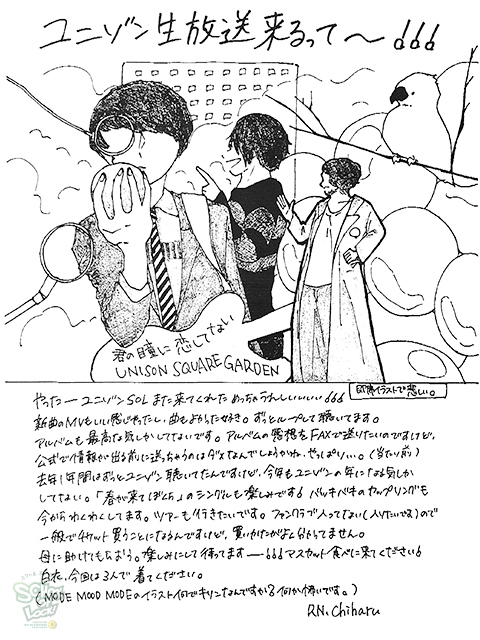 ユニゾン生放送来るって〜!!!
君の瞳に恋してない
UNISON SQUARE GARDEN
即席イラストで悲しい。
やったーユニゾンSOLまた来てくれためっちゃうれしいいいい!!!
新曲のMVもいい感じやったし、曲もよかった好き。ずっとループして聴いてます。
アルバムも最高な気しかしてないです。アルバムの感想をFAXで送りたいのですけど、
公式で情報が出る前に送っちゃうのはダメなんでしょうかね、やっぱり。(当たり前)
去年1年間はずっとユニゾン聴いてたんですけど、今年もユニゾンの年になる気しか
してない。「春が来てぼくら」のシングルも楽しみです!バッキバキのカップリングも
今からわくわくしてます。ツアーも行きたいです。ファンクラブ入ってない(入りたいです)ので
一般でチケット買うことになるんですけど、買いかたがよく分かってません。
母に助けてもらおう。楽しみにして待ってますー!!!マスカット食べに来てください!
白衣、今回は3人で着てください。
(MODE MOOD MODEのイラスト何でキリンなんですか?何か怖いです。)
R.N. Chiharu
SCHOOL OF LOCK!